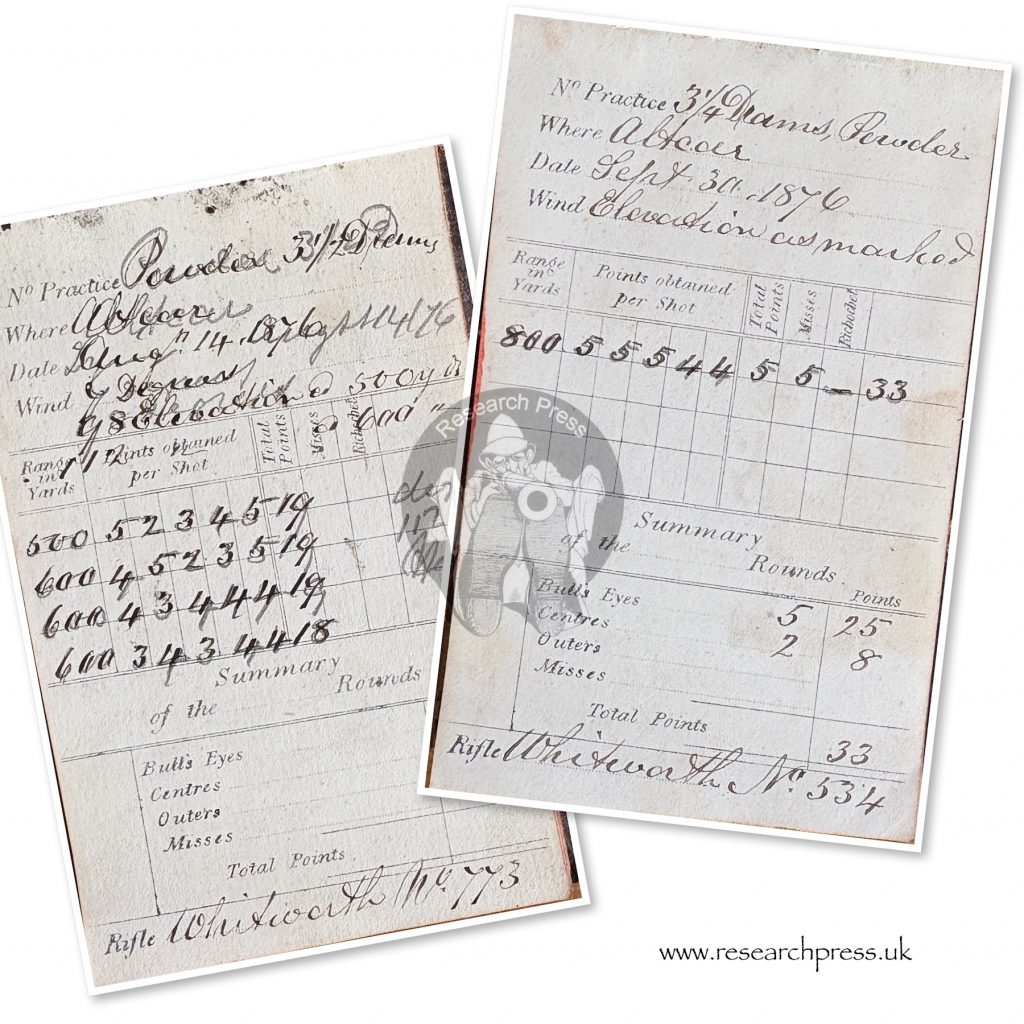 Nº Practice Powder 3 1/2 Drams
Where Altcar
Date Aug 14. 1876
Wind Degrees
98 Elevation 500 yds
600 "
Range in Yards
Points obtained per Shot
Total Points
Misses
Richochet
500 5 2 3 4 5 19
600 4 5 2 3 5 19
600 4 3 4 4 4 19
600 3 4 3 4 4 18
Summary
of the Rounds
Bull's Eyes
Centres
Outers
Misses
Total Points
Rifle Whitworth Nº 773
Nº Practice 3 1/4 Drams, Powder
Where Altcar
Date Sept 30. 1876
Wind Elevation as marked
Range in Yards
Points obtained per Shot
Total Points
Misses
Richochet
800 5 5 5 4 4 5 5 – 33
Summary
of the Rounds
Points
Bulls Eyes 5 25
Centres 2 8
Outers
Misses
Total Points 33
Rifle Whitworth Nº 534
Research Press
www.researchpress.uk